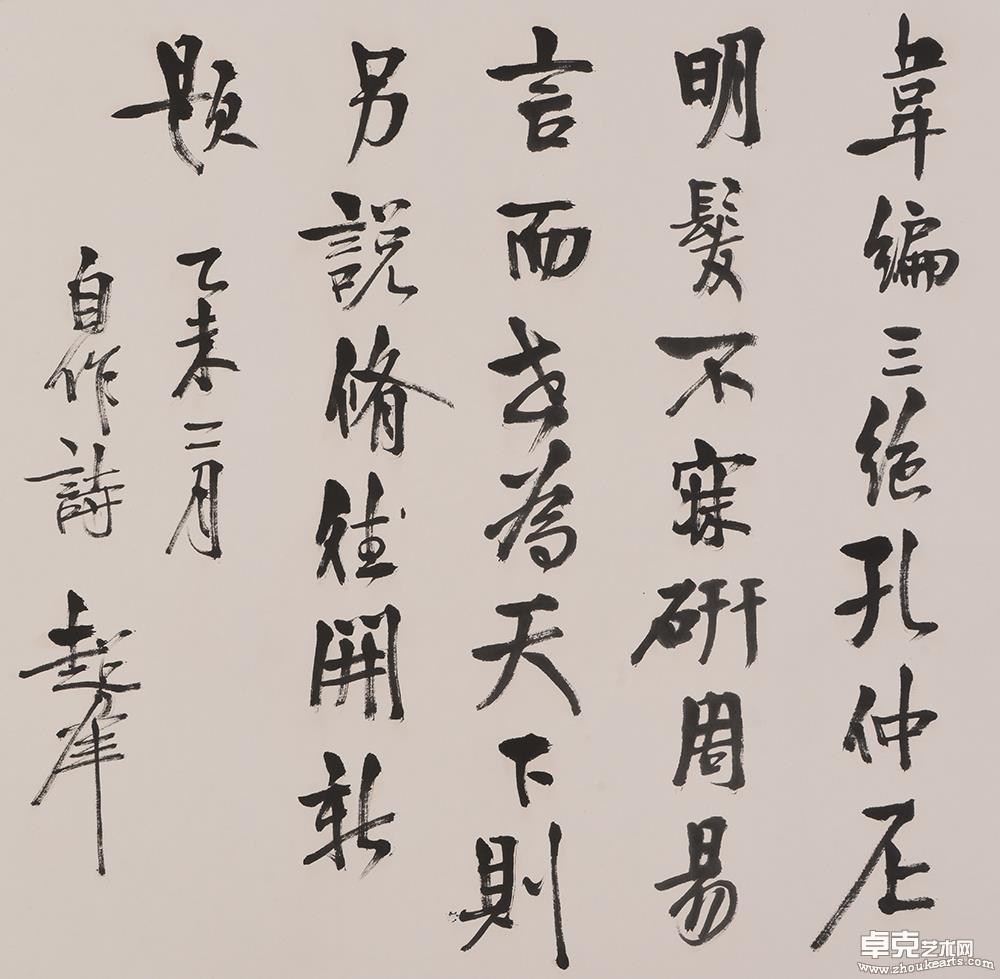 韋編三絕孔仲尼
明髮不寐研周易
言而世為天下則
另說脩往開新
題 乙未二月
自作詩
卓克艺术网
www.zhoukearts.com